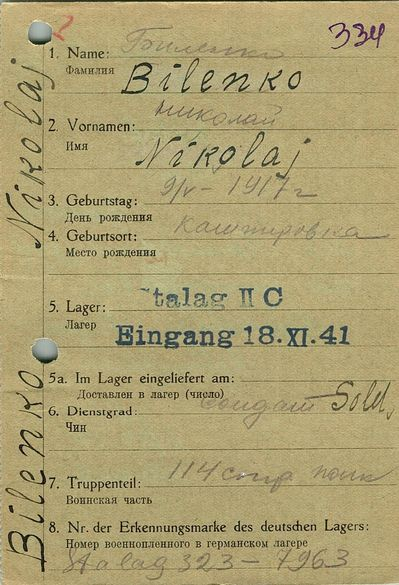 334
1. Name: Биленко
Фамилия
Bilenko
2. Vornamen: Николай
Имя
Nikolaj
3. Geburtstag: 9/V-1917 г
День рождения
4. Geburtsort:
Место рождения
5. Lager: Stalag II C
Лагер
Eingang 18. XI. 41
5a. Im Lager eingeliefert am:
Доставлен в лагер (число)
6. Dienstgrad: солдат Sold.
Чин
7. Truppenteil: 114 полк
Воинская часть
8. Nr. der Erkennungsmarke des deutschen Lagers:
Номер военнопленного в германском лагере
Stalag 323-7963
Bilenko Nikolaj